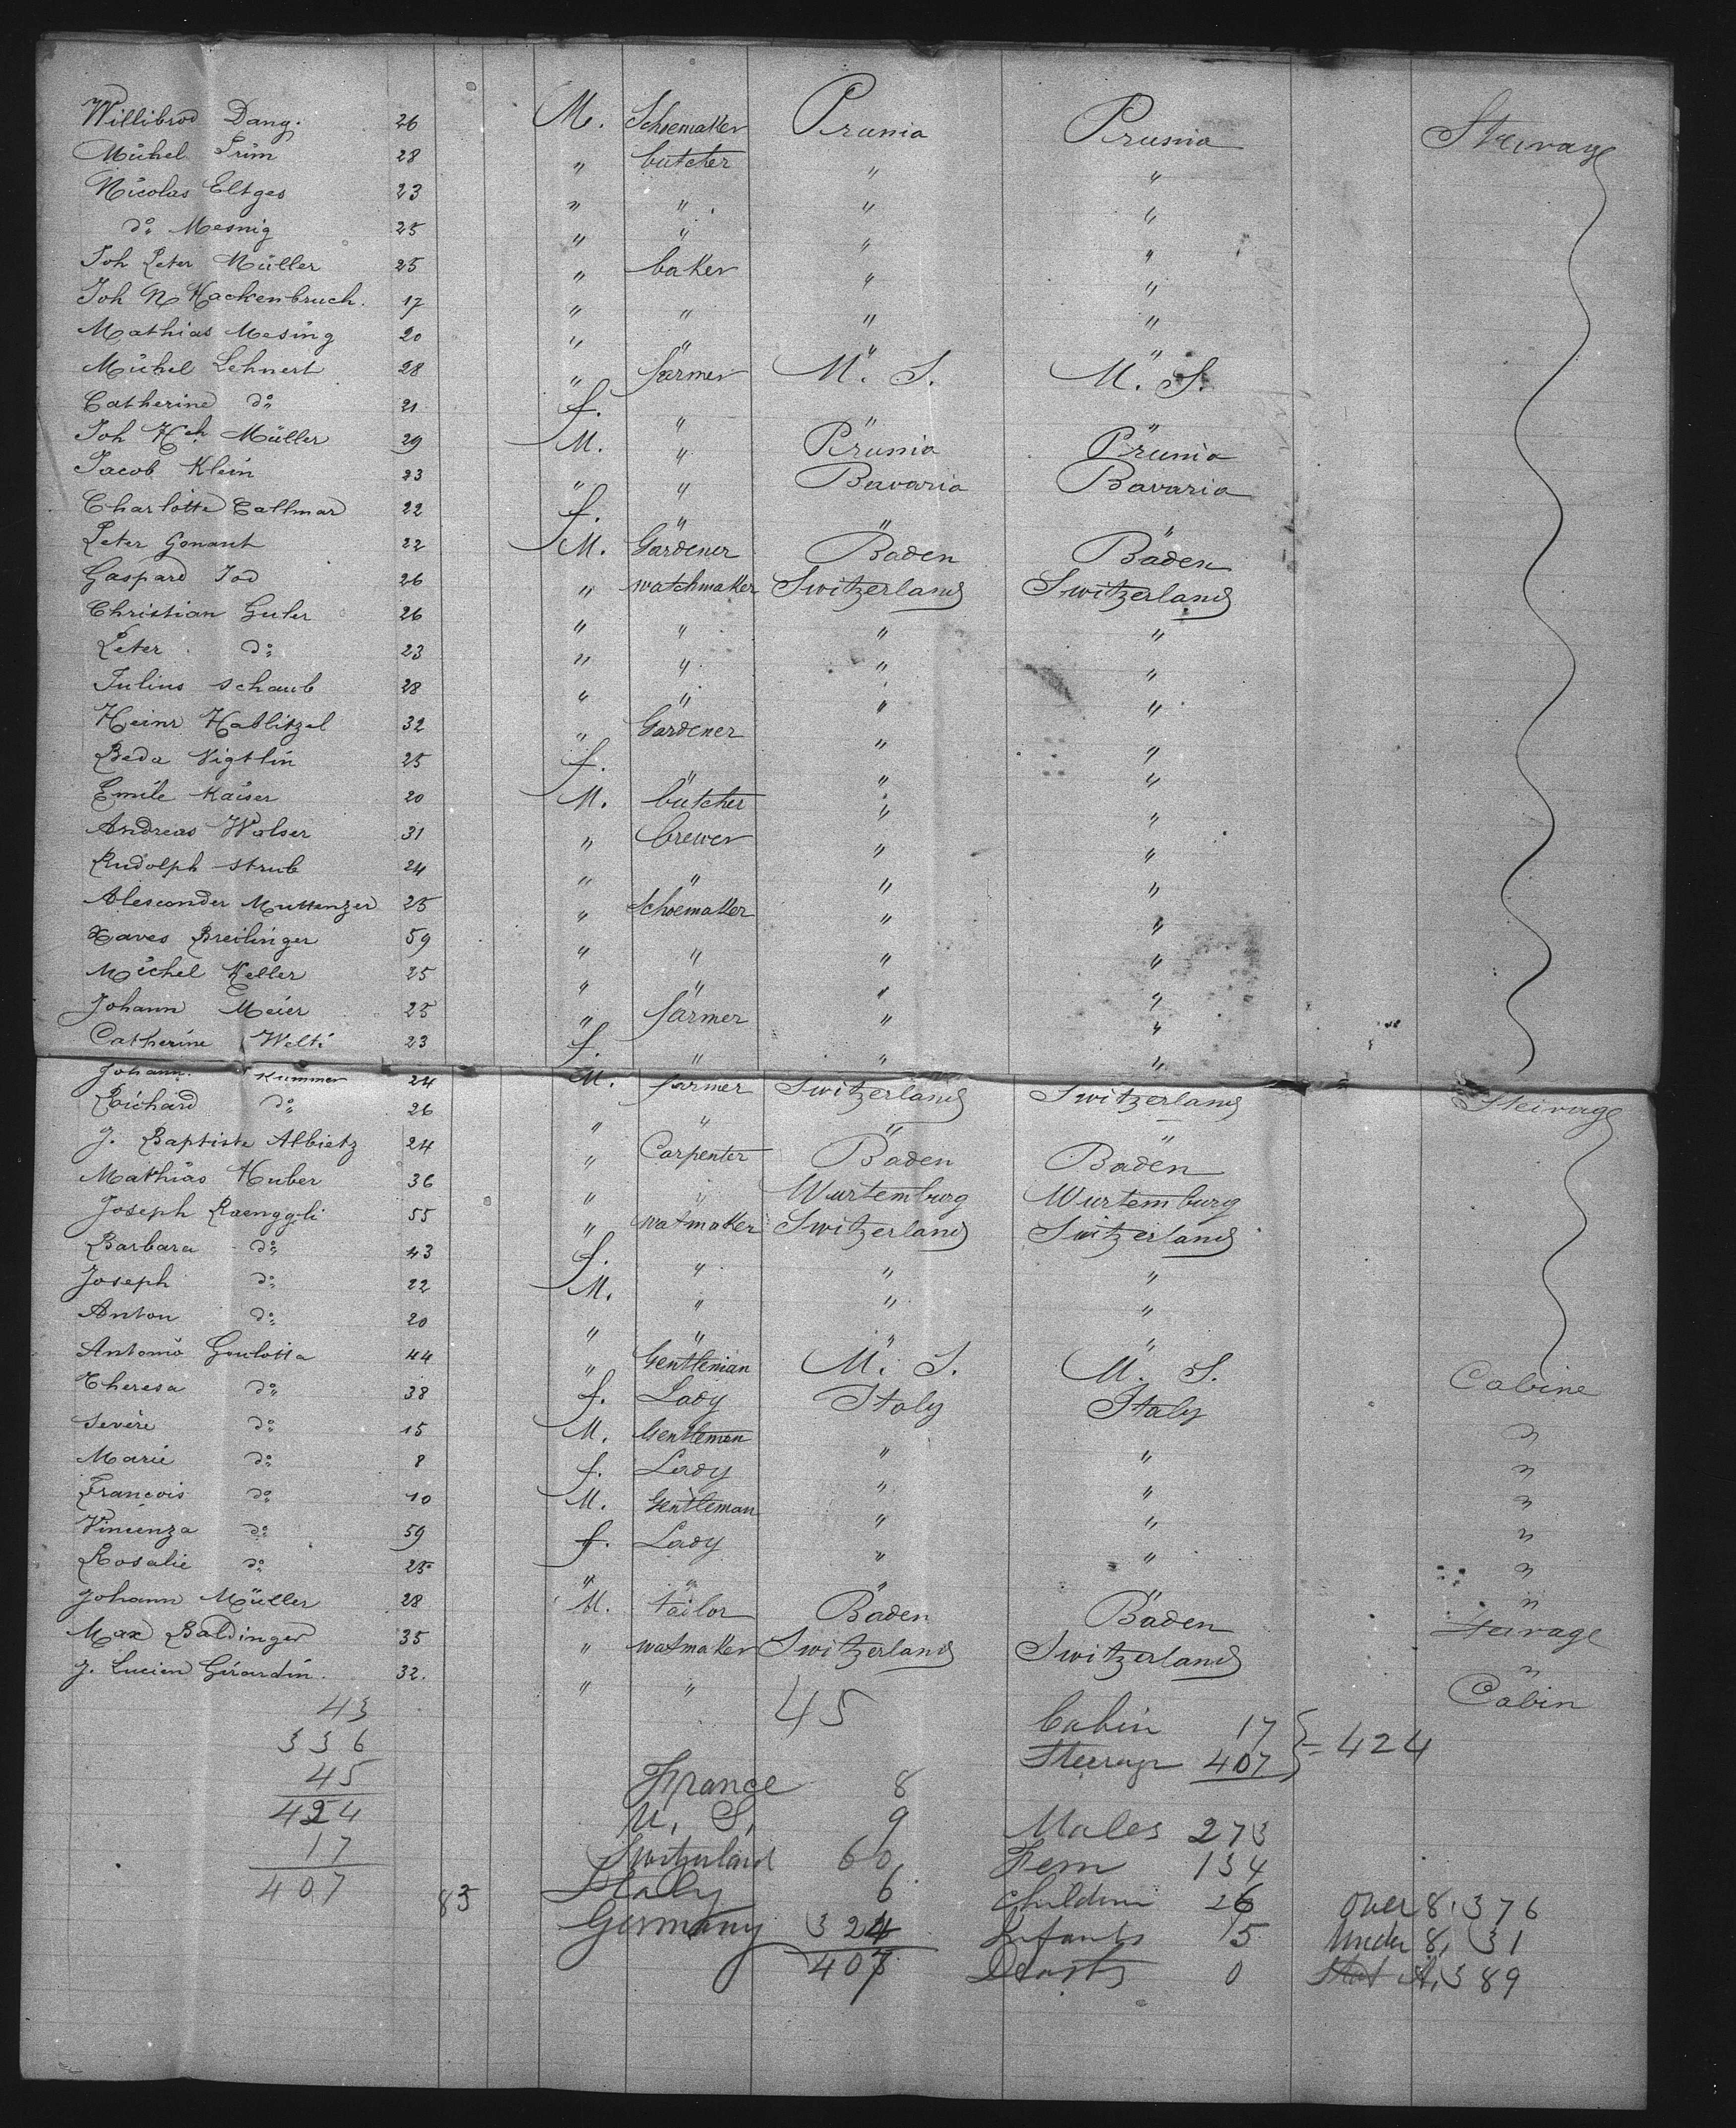 Willibrod Dang. 26 M. Schoemaker Prussia Prussia Steirage
Michel Prim 28 " butcher " "
Nicolas Eltges 23 " " " "
do Mesnig 25 " " " "
Joh Peter Müller 25 " baker " "
Joh N Hackenbruch. 17 " " " "
Mathias Mesing 20 " " " "
Michel Lehnert 28 " farmer U. S. U. S.
Catherine do 21 f. " " "
Joh Hch Müller 29 M. " Prussia Prussia
Jacob Klein 23 " " Bavaria Bavaria
Charlotte Callmar 22 f. " " "
Peter Gonant 22 M. Gardener Baden Baden
Gaspard Tod 26 " watchmaker Switzerland Switzerland
Christian Guler 26 " " " "
Peter do 23 " " " "
Julius Schaub 28 " " " "
Heinr Hablitzel 32 " Gardener " "
Beda Vigtlin 25 f. " " "
Emile Kaiser 20 M. butcher " "
Andreas Walser 31 " brewer " "
Rudolph Strub 24 " " " "
Alesconder Muttenzer 25 " Schoemaker " "
Xaves Breilinger 59 " " " "
Michel Keller 25 " " " "
Johann Meier 25 " farmer " "
Catherine Welti 23 f. " " "
Johann. Kummer 24 M. farmer Switzerland Switzerland Steirage
Richard do 26 " " " "
J. Baptiste Albietz 24 " Carpenter Baden Baden
Mathias Huber 36 " " Wurtemburg Wurtemburg
Joseph Raenggli 55 " watmaker Switzerland Switzerland
Barbara do 43 f. " " "
Joseph do 22 M. " " "
Anton do 20 " " " "
Antonio Goulotta 44 " Gentleman U. S. U. S. Cabine
Theresa do 38 f. Lady Italy Italy "
Sevère do 15 M. Gentleman " " "
Marie do 8 f. Lady " " "
Francois do 10 M. Gentleman " " "
Vincenza do 59 f. Lady " " "
Rosalie do 25 " " " " "
Johann Müller 28 M. tailor Baden Baden Steirage
Max Baldinger 35 " watmaker Switzerland Switzerland "
J. Lucien Girardin. 32. " " Cabin
43 45 Cabin 17
336 Steerage 407 } = 424
45 France 8
424 U. S. 9 Males 273
17 Switzerland 60 Fem 134
407 83 Italy 6 Children 26 over 8, 376
Germany 324 Infants 15 Under 8, 31
407 Deaths 0 389